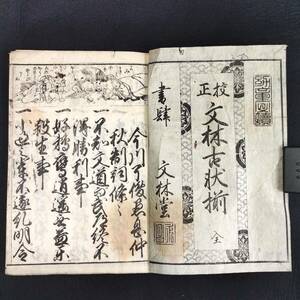 校正
文林古状揃 全
書肆 文林堂
今川了俊愚息仲
秋制詞條々
一不知文道而武道終不
得勝利事
一好鵜鷹逍遥無益
殺生事
一小過之輩不遂糺明令